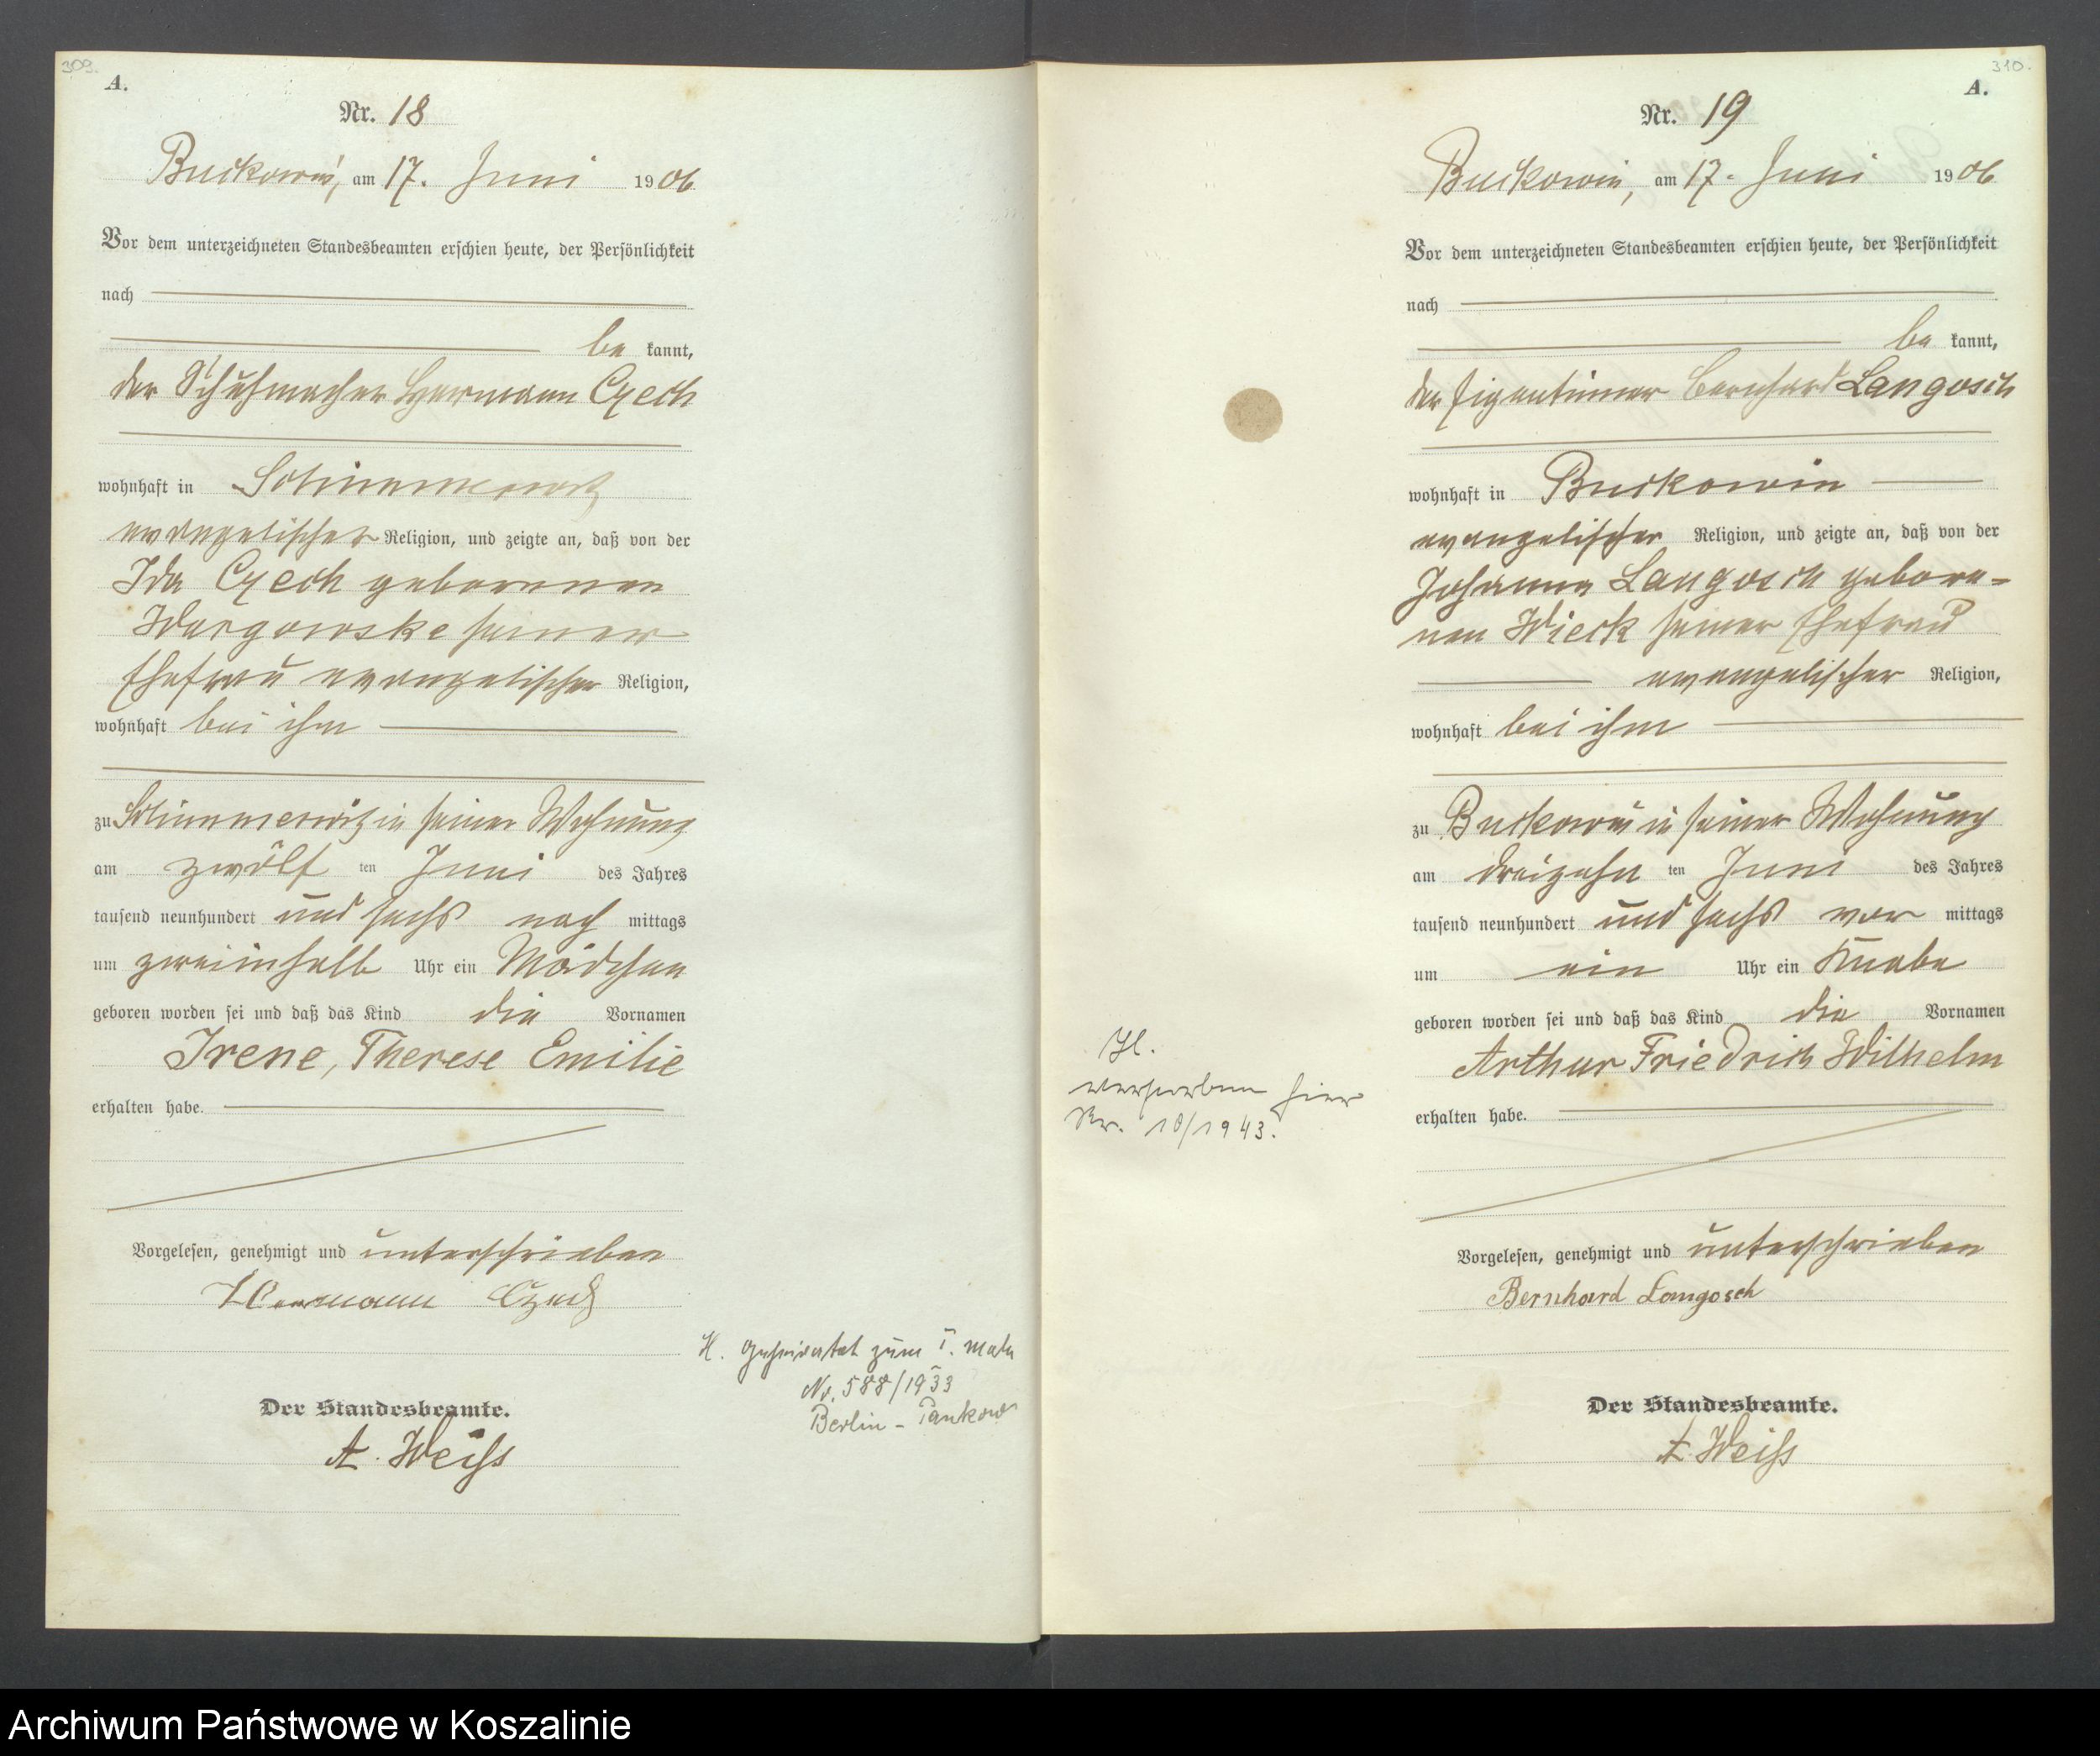 309.
A.
Nr. 18
Buckowin, am 17. Juni 1906
Vor dem unterzeichneten Standesbeamten erschien heute, der Persönlichkeit
nach
be kannt,
der Schuhmacher Hermann Czech
wohnhaft in Schimmerwitz
evangelischer Religion, und zeigte an, daß von der
Ida Czech geborenen
Wargowske seiner
Ehefrau evangelischer Religion,
wohnhaft bei ihm
zu Schimmerwitz in seiner Wohnung
am zwölf ten Juni des Jahres
tausend neunhundert und sechs nach mittags
um zweiinhalb Uhr ein Mädchen
geboren worden sei und daß das Kind die Vornamen
Irene, Therese Emilie
erhalten habe.
Vorgelesen, genehmigt und unterschrieben
Hermann Czech
H. geheiratet zum I. male
Nr. 588/1933
Berlin - Pankow
Der Standesbeamte.
A. Weiss
310.
A.
Nr. 19
Buckowin, am 17. Juni 1906
Vor dem unterzeichneten Standesbeamten erschien heute, der Persönlichkeit
nach
be kannt,
der Eigentümer Bernhard Langosch
wohnhaft in Buckowin
evangelischer Religion, und zeigte an, daß von der
Johanna Langosch gebore-
nen Wieck seiner Ehefrau
evangelischer Religion,
wohnhaft bei ihm
zu Buckowin in seiner Wohnung
am dreizehn ten Juni des Jahres
tausend neunhundert und sechs vor mittags
um ein Uhr ein Knabe
geboren worden sei und daß das Kind die Vornamen
Arthur Friedrich Wilhelm
erhalten habe.
verstorben hier
Nr. 10/1943.
Vorgelesen, genehmigt und unterschrieben
Bernhard Langosch
Der Standesbeamte.
A. Weiss
Archiwum Państwowe w Koszalinie